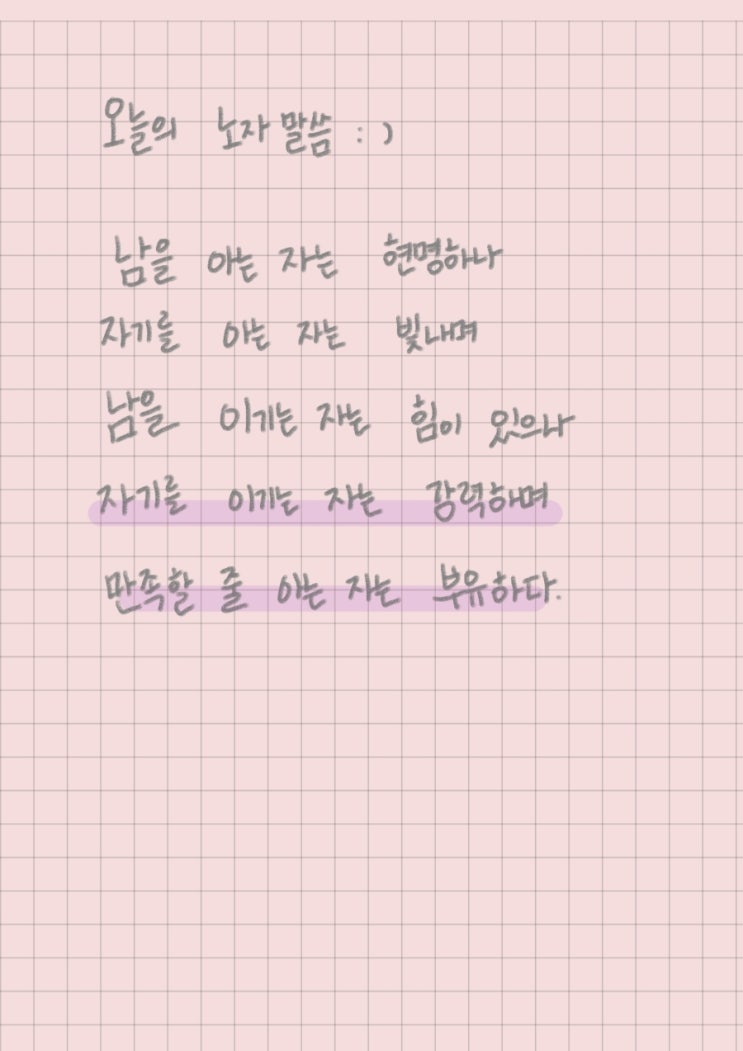 오늘의 노자 말씀 : )
남을 아는 자는 현명하나
자기를 아는 자는 빛내며
남을 이기는 자는 힘이 있으나
자기를 이기는 자는 강력하며
만족할 줄 아는 자는 부유하다.